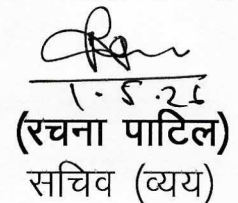 1.5.26
(रचना पाटिल)
सचिव (व्यय)